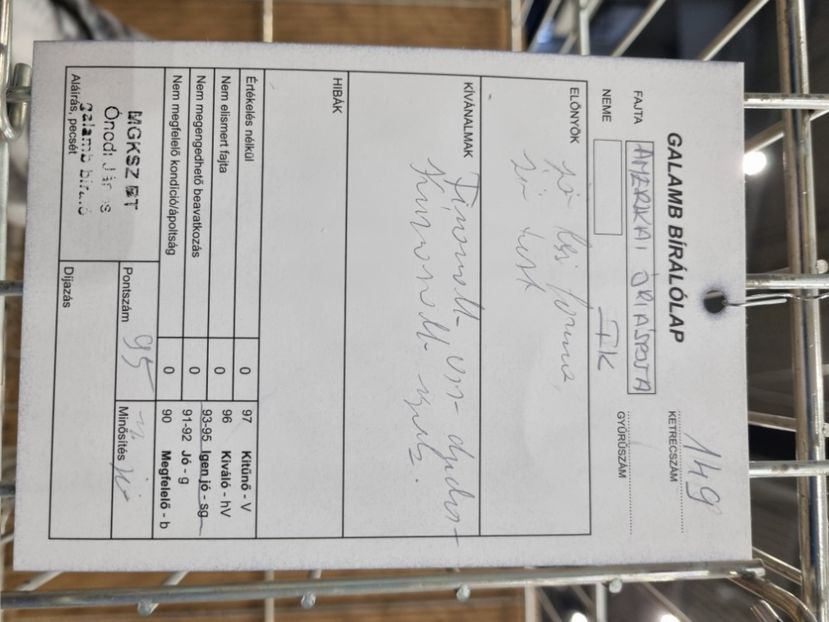 GALAMB BÍRÁLÓLAP
149
KETRECSZÁM
FAJTA AMERIKAI ÓRIÁSPOSTA
NEME TK
GYŰRŰSZÁM
ELŐNYÖK
jó forma,
jó test
KÍVÁNALMAK
Finomabb
HIBÁK
Értékelés nélkül 0
Nem elismert fajta 0
Nem megengedhető beavatkozás 0
Nem megfelelő kondíció/ápoltság 0
97 Kitűnő - V
96 Kiváló - hV
93-95 Igen jó - sg
91-92 Jó - g
90 Megfelelő - b
MGKSZ BT
Ónodi János
galamb bíráló
Aláírás, pecsét
Pontszám 95
Minősítés i. jó
Díjazás